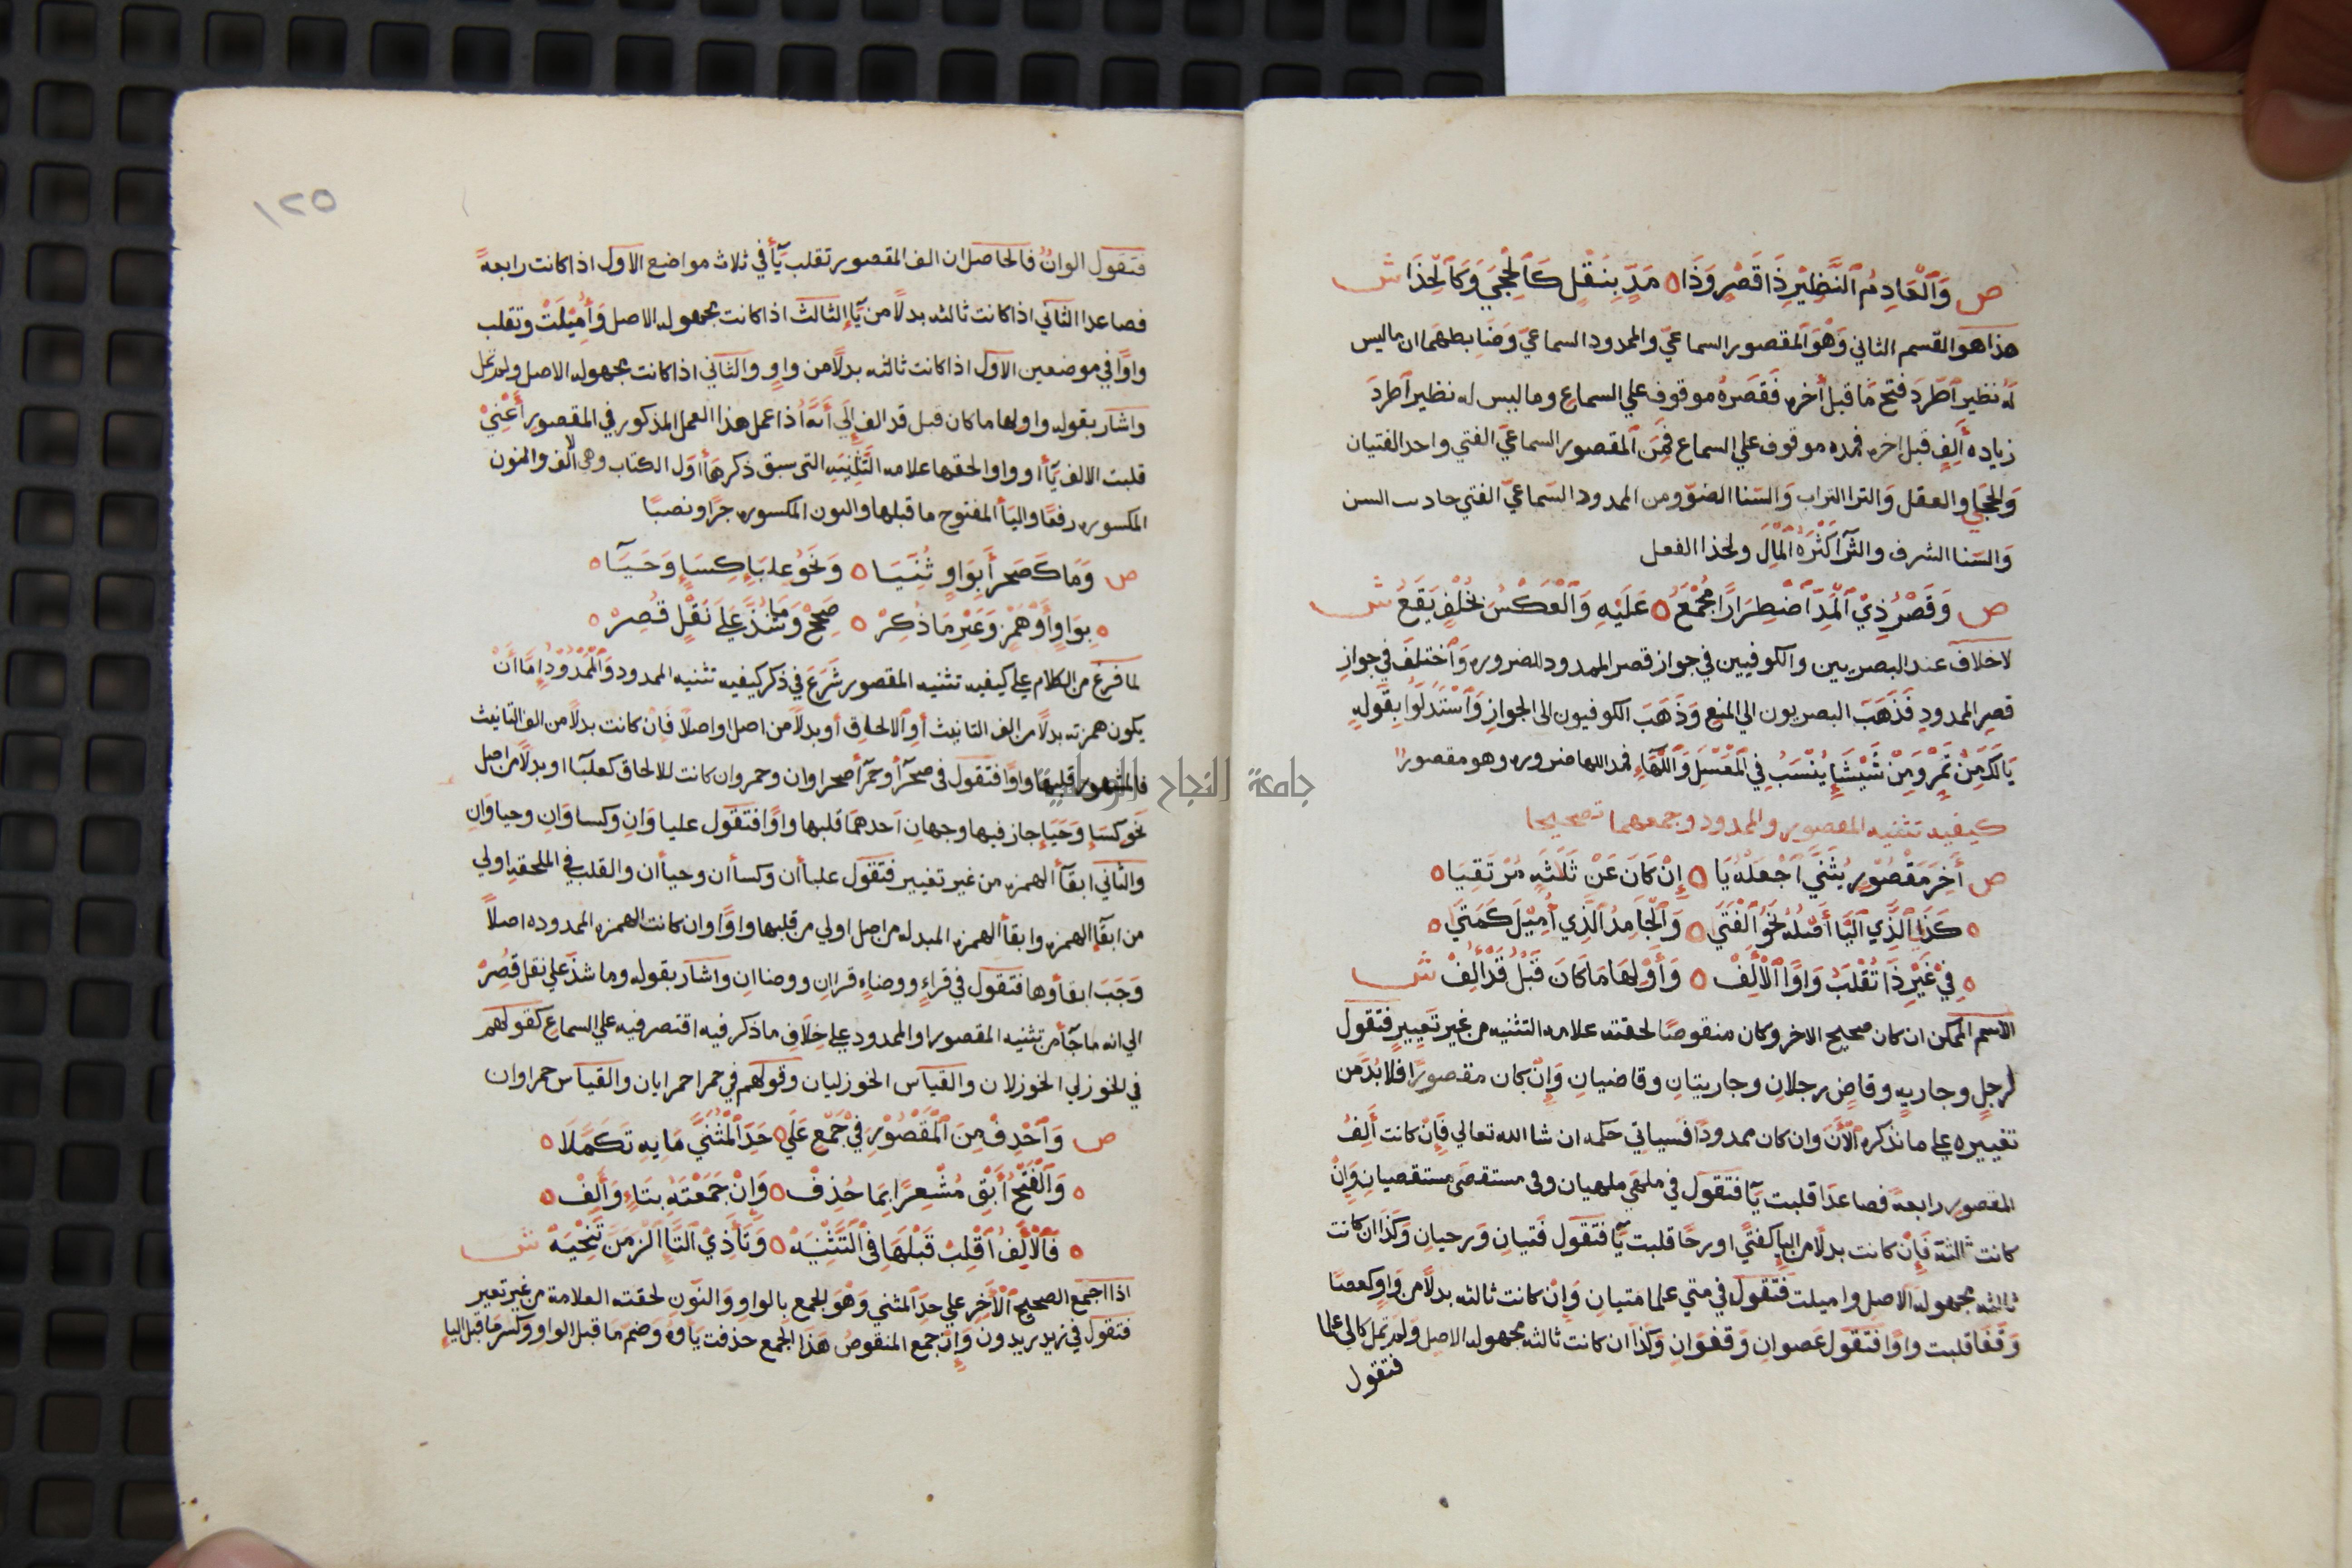 ص وَالْعَادِمُ النَّظِيْرِ ذَا قَصْرٍ وَذَا مَدٍّ بِنَقْلٍ كَالْحِجَى وَكَالْحِذَا ش
هذا هو القسم الثاني وَهُوَ المقصور السماعيّ والممدود السماعيّ وَضَابطهمَا ان ماليس
لَهُ نظير اطّردَ فتحُ مَا قبل أخره فَقَصَرهُ موقوف علي السماع وما ليس له نظير اطّردَ
زياده أَلِفٍ قبل اخره فمده موقوف علي السماع فَمِنَ المقصور السماعيّ الفتي واحد الفتيان
وَالحَجَي والعقل وَالترا التراب وَالسّنا الضوّ ومن الممدود السّماعيّ الفتي حادث السن
وَالسّنا الشرف والثرآ كَثْرَة المَال ولحذا الفعل
ص وَقَصْرُ ذِيْ الْمَدِّ اضْطِرَارًا مُجْمَعُ عَلَيْهِ وَالْعَكْسُ بخُلْفٍ يَقَعُ ش
لا خلاف عند البصريين والكوفيين في جواز قصر الممدود للضروره وَاختلفَ في جوازِ
قصرِ الممدودِ فَذَهَبَ البصريون الي المنع وَذَهَبَ الكوفيون الي الجوازِ وَاسْتدلوا بقَولهِ
يَا لَكَ مِنْ تَمْرٍ وَمِنْ شَيْشَاءٍ يَنْشَبُ فِي الْمَعْسَلِ وَاللَّهَاءِ فمد اللها ضروره وهو مقصورا
كيفيه تثنيه المقصور والممدود وجمعهما تصحيحا
ص أَخِرَ مَقْصُوْرٍ يُثَنَّي اجْعَلْهُ يَا إِنْ كَانَ عَنْ ثَلَثَه مُرْتَقِيَا
كَذَا الَّذِي اليَا أَصْلُهُ نَحْوُ الْفَتَي وَالْجَامِدُ الَّذِي أُمِيْلَ كَمَتَي
فِيْ غَيْرِ ذَا تُقْلَبُ وَاوًا الْأَلِفْ وَأَوْلِهَا مَا كَانَ قَبْلُ قَدْ أُلِفْ ش
الاسم المتمكن ان كان صحيح الاخر وكان منقوصًا لحقته علامه التثنيه من غير تَغييرٍ فتقول
لرجلٍ وجاريهٍ وقاضٍ رجلانِ وجاريتانِ وقاضيانِ وَإِنْ كان مقصورًا فلا بُدَّ من
تغييره علي ما نذكره الْآنَ وان كان ممدودًا فَسياتي حكمه ان شا الله تعالي فَإِنْ كانت أَلِفُ
المقصور رابعةً فصاعدًا قلبت يآً فتَقول في ملهي ملهيان وفي مستقصَي مستقصيانِ وَإِنْ
كانت ثالثة فَإِنْ كانت بدلًا من اليا كفتَي او رحًا قلبت يآً فتقول فتيان وَرحيان وَكذَا ان كانت
ثالثه مجهوله الاصل واميلت فَتقول في متي علما متيانِ وَإِنْ كانت ثالثه بدلًا من وَاوٍ كعصًا
وَقَفَا قلبت واوًا فتقول عصوانِ وَقفوانِ وَكذا ان كانت ثالثه مجهوله الاصلِ وَلم تمل كالي علما
فتقول
١٢٥
فتقول الوانُ فالحاصل ان الف المقصور تقلب يآً في ثلاث مواضع الاول اذا كانت رابعةً
فصاعدا الثاني اذا كانت ثالثه بدلًا من يآءٍ الثالث اذا كانت مجهوله الاصل وَأُمِيْلَتْ وتقلب
واوًا في موضعين الاول اذا كانت ثالثه بدلًا من واوٍ والثاني اذا كانت مجهوله الاصل ولم تمل
واشار بقوله واولها ما كان قبل قد الف إلَي أَنّهُ اذا عمل هذا العمل المذكور في المقصور أَعْنِيْ
قلبت الالف يآً او واوا لحقها علامه التَّثْنِيَهِ التي سبق ذكرهَا أوّل الكتاب وهي الالف والنون
المكسوره رفعًا واليآ المفتوح ما قبلها والنون المكسوره جرًّا ونصبًا
ص وَمَا كَصَحْرَآ بِوَاوٍ ثُنِّيَا وَنَحْوُ عِلبَاءٍ كِسَاءٍ وَحَيَآ
بِوَاوٍ أَوْ هَمْزٍ وَغَيْرَ مَا ذُكِرْ صَحِحْ وَمَا شَذَّ عَلَي نَقْلٍ قُصِرْ
لما فرغ من الكلام علي كيفيه تثنيه المقصور شَرَعَ في ذكر كيفيه تثنيه الممدود وَالْمَمْدُوْدُ إِمَّا أَنْ
يكون همزته بدلًا من الف التانيث أو الالحاق أو بدلًا من اصل او اصلًا فَإِنْ كانت بدلًا من الف التانيث
فالمشهور قلبها واوًا فتقول في صحرآ وحمرآ صحراوان وحمر وان كانت للالحاق كعلبآ او بدلًا من اصل
نَحو كسَاءٍ وَحَيَاءٍ جاز فيها وجهانِ احدهمَا قلبها واوًا فتقول عليا وَانِ وكسا وَانِ وحياوَانِ
والثاني ابقآ الهمزه من غير تغيير فتقول علبأان وكسأان وحيأان والقلب في الملحقه اولي
من ابقآ الهمزه وابقآ الهمزه المبدله من اصل اولي من قلبها واوًا وان كانت الهمزه الممدوده اصلًا
وَجَبَ ابقاؤها فتقول في قراءٍ ووضاءٍ قراانِ ووضاانِ واشار بقوله وما شذّ علي نقل قُصِرْ
الي انه ما جآ من تثنيه المقصور او الممدود علي خِلَافِ ما ذكر فيه اقتصر فيه علي السماع كقولهم
في الخوزلي الخوزلان والقياس الخوزليان وقولهم في حمرا حمرايان والقياس حمراوان
ص وَاحْذِفْ مِنَ الْمَقْصُوْرِ فِيْ جَمْعٍ عَلَي حَدِّ الْمُثَنَّي مَا بِهِ تَكَمَّلَا
وَالْفَتْحُ أَبْقِ مُشْعِرًا بِمَا حُذِفْ وَإِنْ جَمَعْتَهُ بِتَاءٍ وَأَلِفْ
فَالْأَلِفُ اقْلِبْ قَلْبَهَا فِيْ التَّثْنِيَهْ وَتَأَ ذِيْ التَّا الْزِمَنَّ تَنْحِيَهْ ش
اذا اجمع الصحيح الْأَخِرِ علي حدّ المثني وَهْوَ الجمع بالواو وَالنّونِ لحقته العلامة من غير تعير
فتقول في زيد زيدون وَإِنْ جمع المنقوص هَذَا الجمع حذفت يآوهُ وضمّ مَا قبل الواو وَكسرمَا قبل الياءِ
جامعة النجاح الوطنية